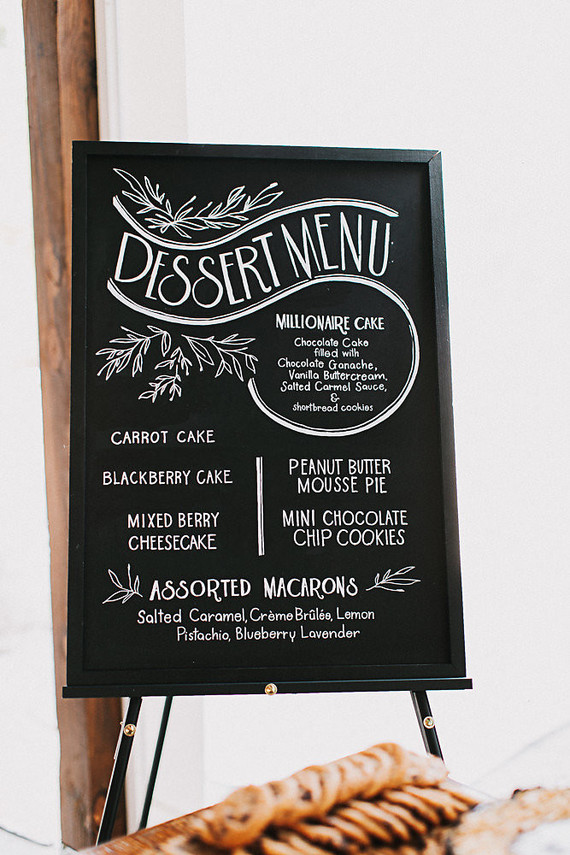 DESSERT MENU
MILLIONAIRE CAKE
Chocolate Cake
filled with
Chocolate Ganache,
Vanilla Buttercream,
Salted Carmel Sauce,
&
shortbread cookies
CARROT CAKE
BLACKBERRY CAKE
MIXED BERRY
CHEESECAKE
PEANUT BUTTER
MOUSSE PIE
MINI CHOCOLATE
CHIP COOKIES
ASSORTED MACARONS
Salted Caramel, Crème Brûlée, Lemon
Pistachio, Blueberry Lavender